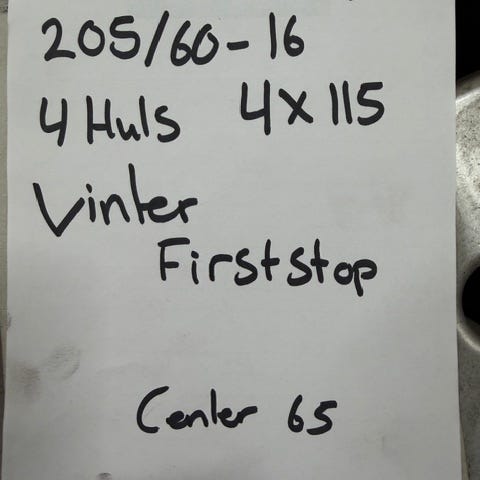 205/60-16
4 Huls 4x115
Vinter
Firststop
Center 65